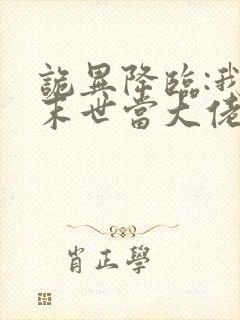 詭異降臨:我
末世當大佬
肖正學